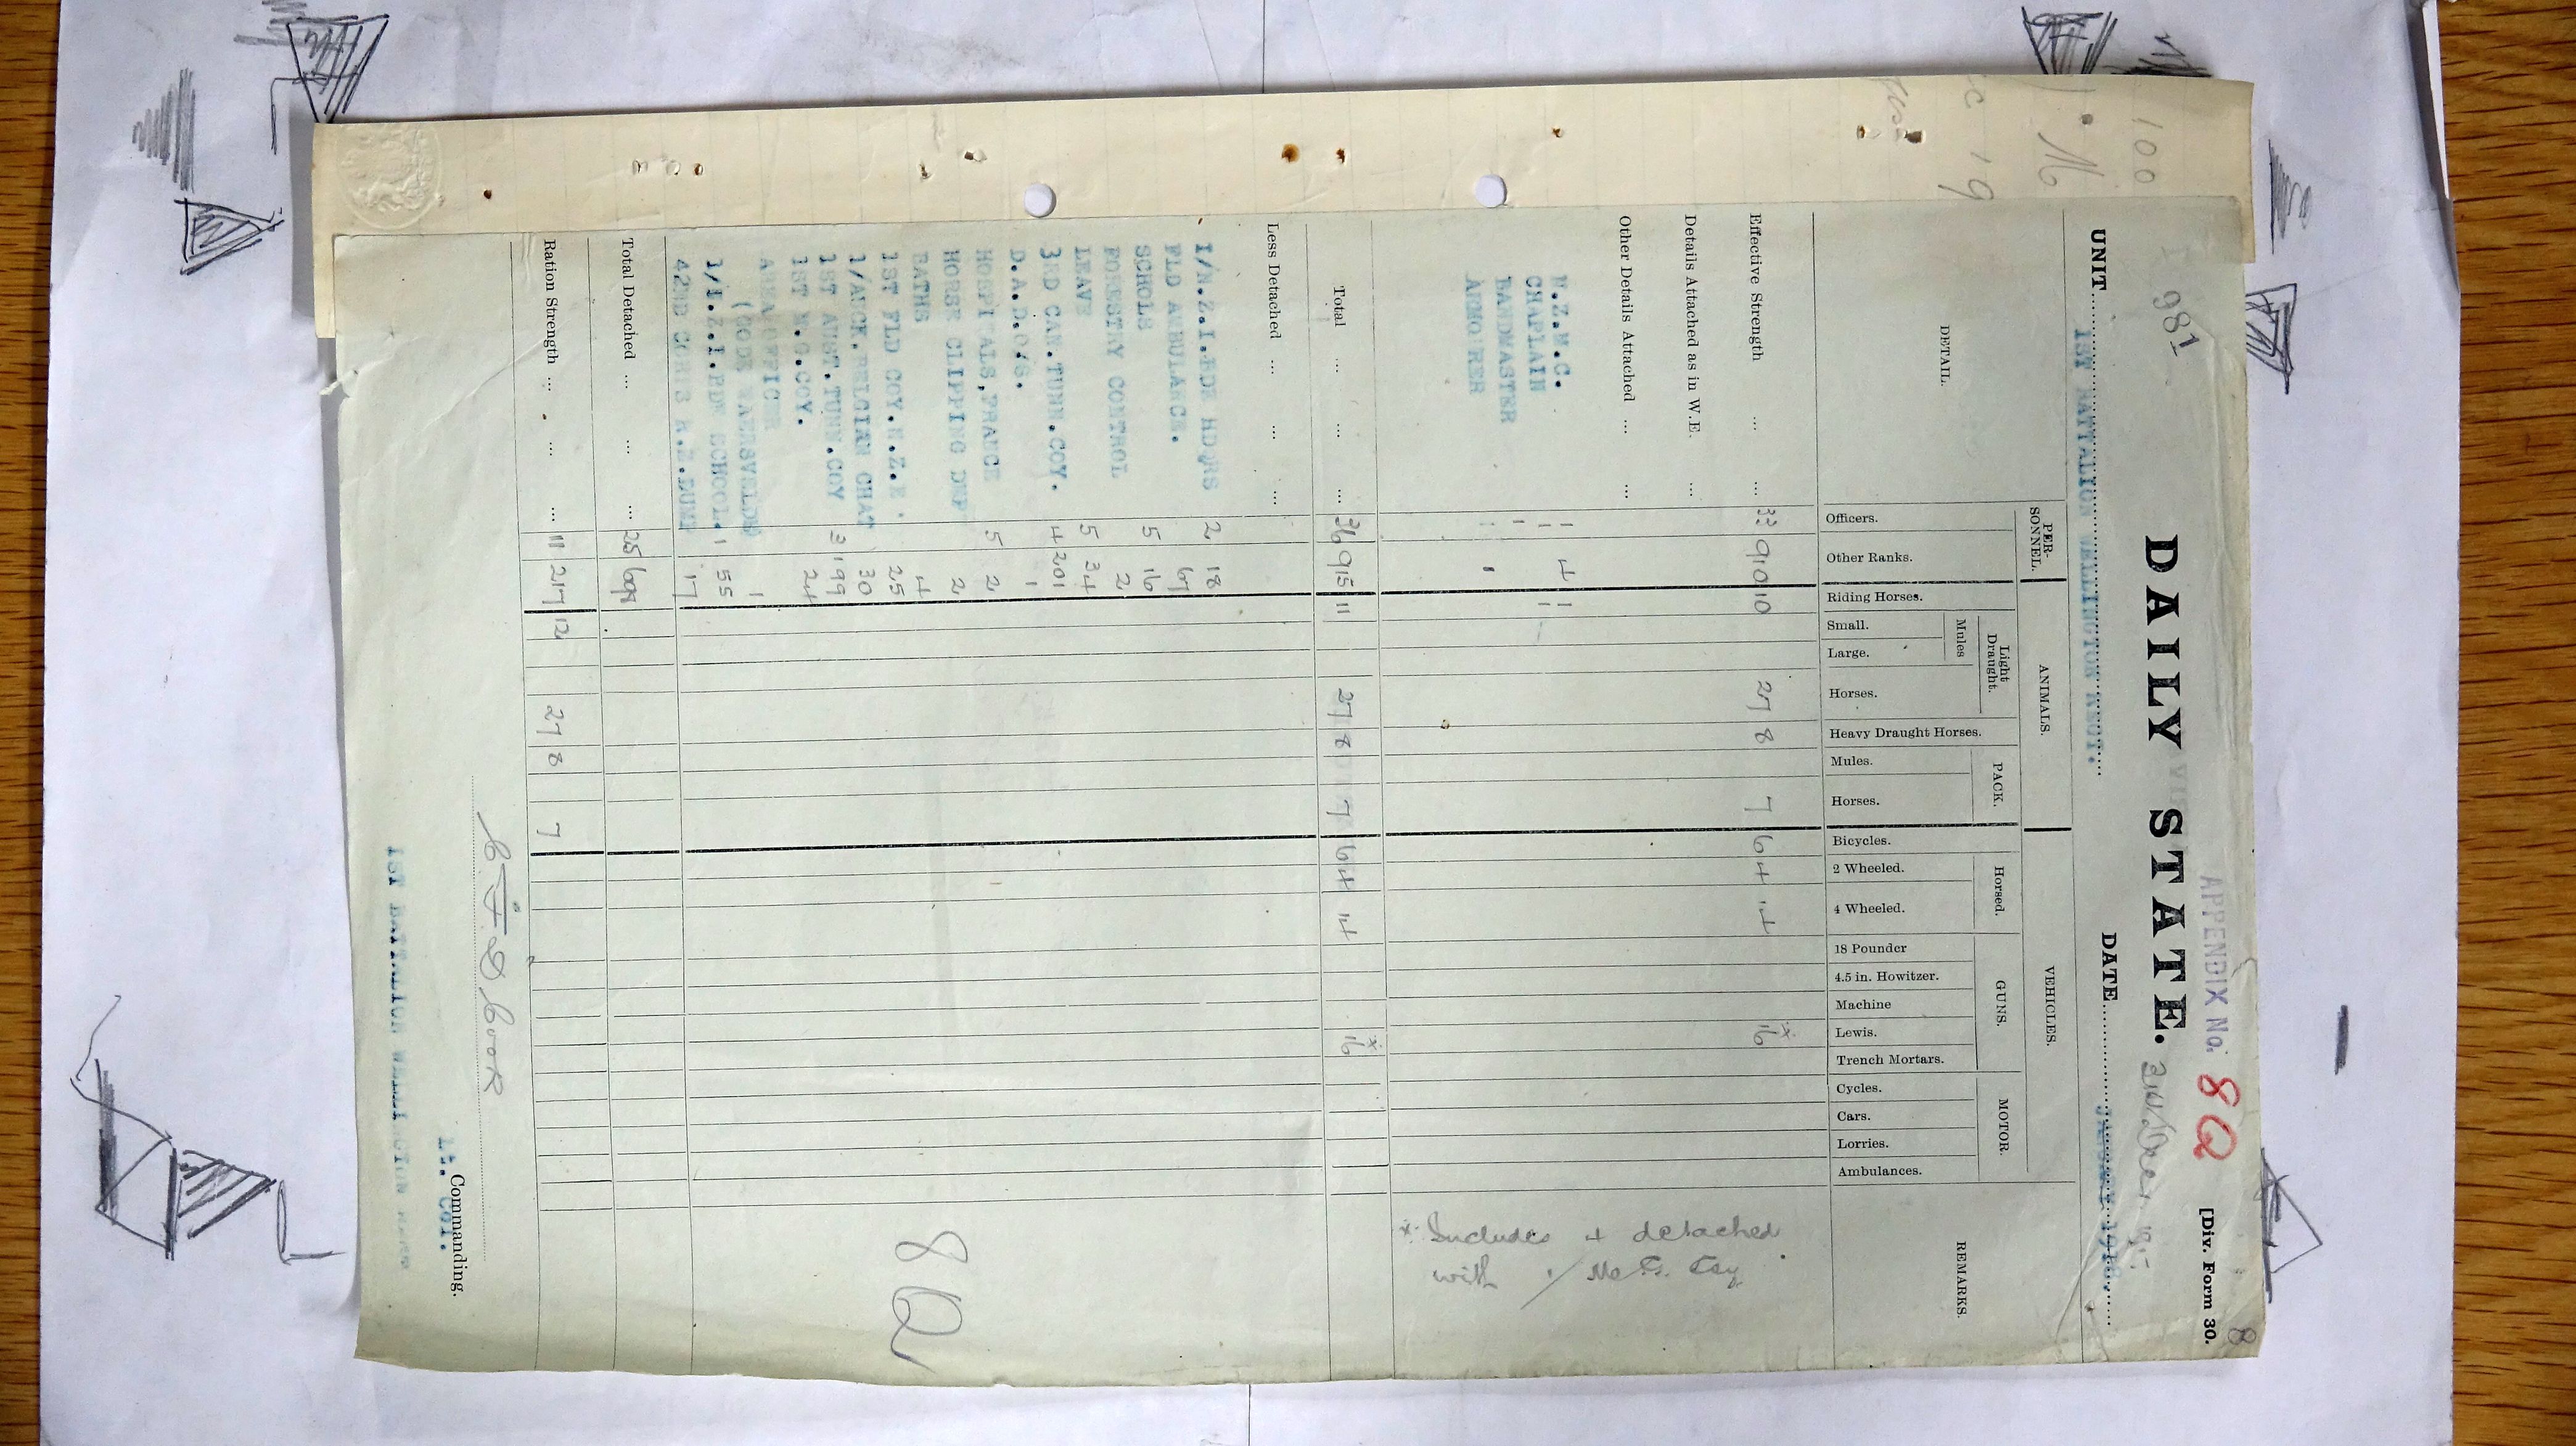 APPENDIX No. 8Q
[Div. Form 30.
8
981
DAILY STATE.
UNIT 1ST BATTALION WELLINGTON REGT.
DATE 1918.
DETAIL.
PER-SONNEL.
ANIMALS.
VEHICLES.
REMARKS.
Light Draught.
PACK.
Horsed.
GUNS.
MOTOR.
Mules
Officers.
Other Ranks.
Riding Horses.
Small.
Large.
Horses.
Heavy Draught Horses.
Mules.
Horses.
Bicycles.
2 Wheeled.
4 Wheeled.
18 Pounder
4.5 in. Howitzer.
Machine
Lewis.
Trench Mortars.
Cycles.
Cars.
Lorries.
Ambulances.
Effective Strength ... ... 33 910 10 27 8 7 6 4 4 *16
Details Attached as in W.E. ...
Other Details Attached ... ...
N.Z.M.C. 1 4 1
CHAPLAIN 1 1
BANDMASTER 1
ARMOURER
* Includes 4 detached
with 1/ M.G. Coy
Total ... ... ... 36 915 11 27 8 7 6 4 4 *16
Less Detached ... ... ...
1/N.Z.I.BDE HDQRS 2 18
FLD AMBULANCE. 67
SCHOLS 5 16
FORESTRY CONTROL 2
LEAVE 5 34
3RD CAN.TUNN.COY. 4 201
D.A.D.O.S. 1
HOSPITALS,FRANCE 5 2
HORSE CLIPPING DEP 2
BATHS 4
1ST FLD COY.N.Z.E. 25
1/AUCK.BELGIAN CHAT 30
1ST AUST.TUNN.COY 3 199
1ST M.G.COY. 24
AREA OFFICE
(GODE WAERSVELDE 1
1/N.Z.I.BDE SCHOOL. 1 55
42ND CORIS R.E.DUMP 17
8Q
Total Detached ... ... ... 25 698
Ration Strength ... ... ... 11 217 12 27 8 7
Commanding.
Lt. Col.
1ST BATTALION WELLINGTON REGT